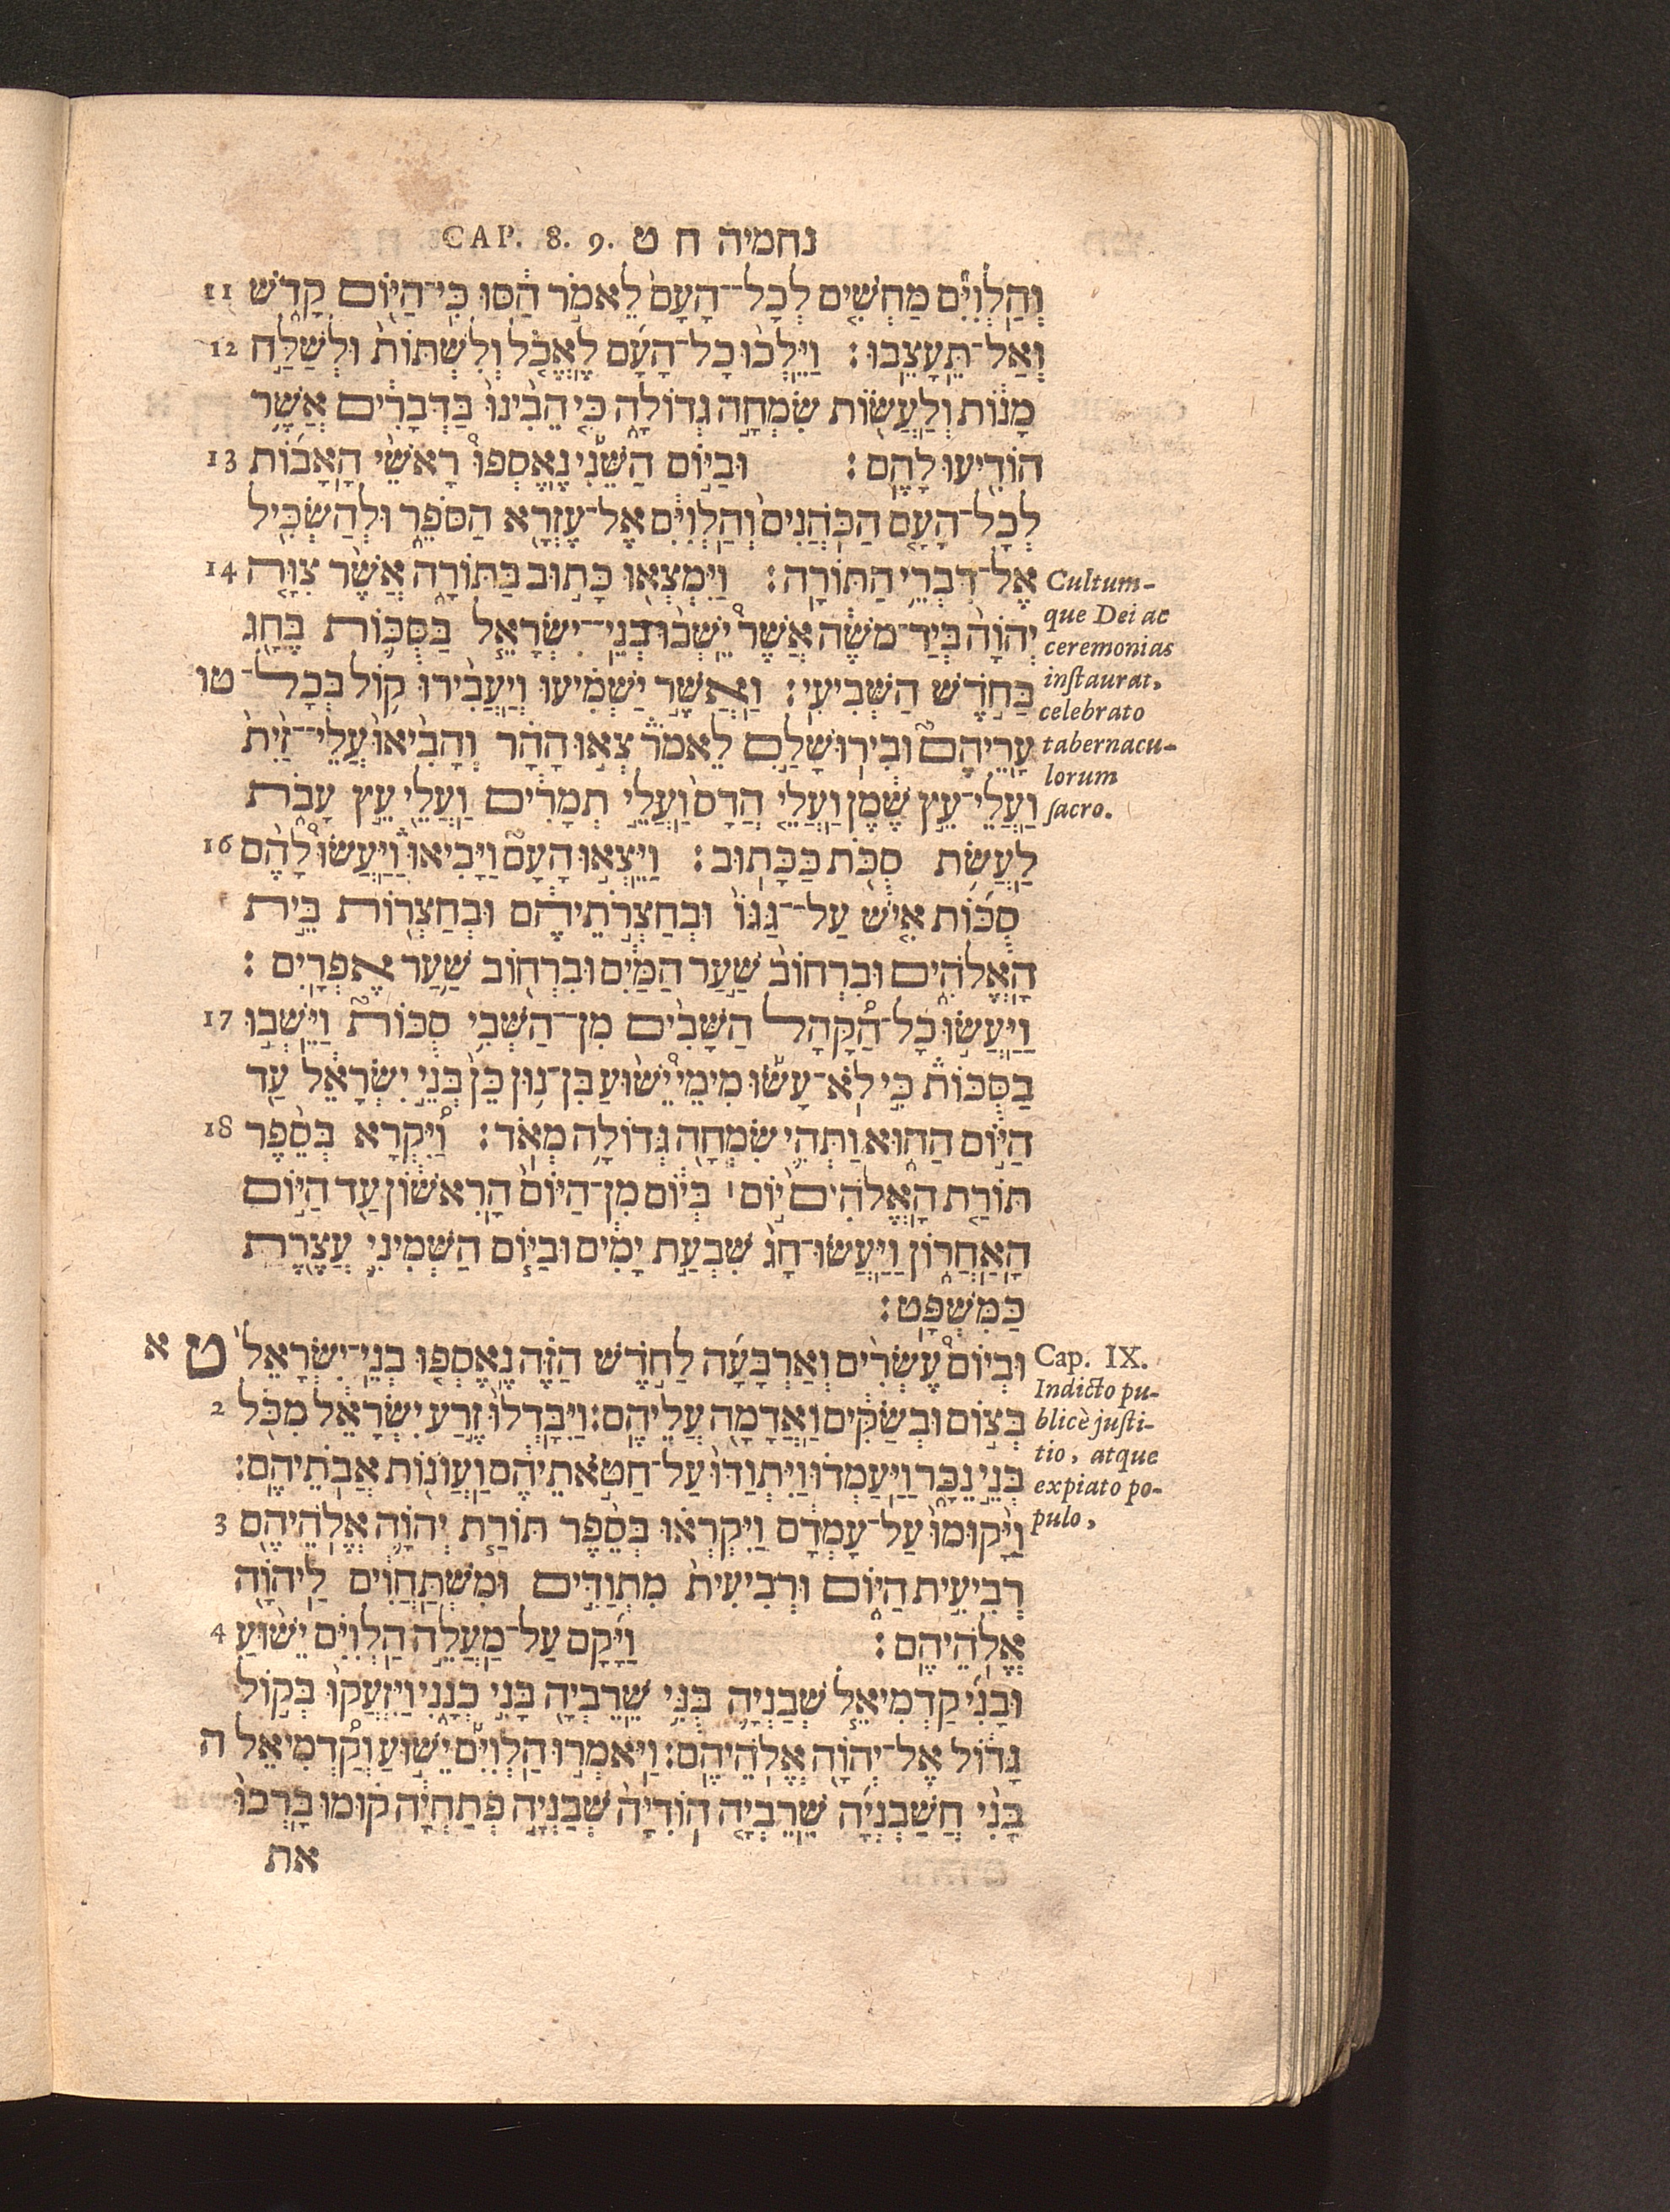 CAP. 8. 9. נחמיה ח ט
וְהַלְוִיִּ֞ם מַחְשִׁ֤ים לְכָל־הָעָם֙ לֵאמֹ֣ר הַ֔סּוּ כִּ֥י־הַיּ֖וֹם קָדֹ֑שׁ 11
וְאַל־תֵּעָצֵֽבוּ׃ וַיֵּלְכ֨וּ כָל־הָעָ֜ם לֶאֱכֹ֤ל וְלִשְׁתּוֹת֙ וּלְשַׁלַּ֣ח 12
מָנ֔וֹת וְלַעֲשׂ֖וֹת שִׂמְחָ֣ה גְדוֹלָ֑ה כִּ֤י הֵבִ֙ינוּ֙ בַּדְּבָרִ֔ים אֲשֶׁ֥ר
הוֹדִ֖יעוּ לָהֶֽם׃ וּבַיּ֣וֹם הַשֵּׁנִ֡י נֶאֶסְפוּ֩ רָאשֵׁ֨י הָאָב֜וֹת 13
לְכָל־הָעָ֗ם הַכֹּֽהֲנִים֙ וְהַלְוִיִּ֔ם אֶל־עֶזְרָ֖א הַסֹּפֵ֑ר וּלְהַשְׂכִּ֖יל
אֶל־דִּבְרֵ֥י הַתּוֹרָֽה׃ וַֽיִּמְצְא֖וּ כָּת֣וּב בַּתּוֹרָ֑ה אֲשֶׁ֨ר צִוָּ֤ה 14
יְהוָֹה֙ בְּיַד־מֹשֶׁ֔ה אֲשֶׁר֩ יֵשְׁב֨וּ בְנֵֽי־יִשְׂרָאֵ֧ל בַּסֻּכּ֛וֹת בֶּחָ֖ג
בַּחֹ֥דֶשׁ הַשְּׁבִיעִֽי׃ וַאֲשֶׁ֣ר יַשְׁמִ֗יעוּ וְיַעֲבִ֨ירוּ ק֥וֹל בְּכָל־ טו
עָרֵיהֶם֮ וּבִירֽוּשָׁלִַ֣ם לֵאמֹר֒ צְא֣וּ הָהָ֗ר וְהָבִ֙יאוּ֙ עֲלֵי־זַ֙יִת֙
וַעֲלֵי־עֵ֣ץ שֶׁ֔מֶן וַעֲלֵ֤י הֲדַס֙ וַעֲלֵ֣י תְמָרִ֔ים וַעֲלֵ֖י עֵ֣ץ עָבֹ֑ת
לַעֲשֹׂ֥ת סֻכֹּ֖ת כַּכָּתֽוּב׃ וַיֵּצְא֣וּ הָעָם֮ וַיָּבִיאוּ֒ וַיַּעֲשׂוּ֩ לָהֶ֨ם 16
סֻכּ֜וֹת אִ֤ישׁ עַל־גַּגּוֹ֙ וּבְחַצְרֹ֣תֵיהֶ֔ם וּבְחַצְר֖וֹת בֵּ֣ית
הָאֱלֹהִ֑ים וּבִרְחוֹב֙ שַׁ֣עַר הַמַּ֔יִם וּבִרְח֖וֹב שַׁ֥עַר אֶפְרָֽיִם׃
וַיַּעֲשׂ֣וּ כָֽל־הַ֠קָּהָל הַשָּׁבִ֨ים מִן־הַשְּׁבִ֥י סֻכּוֹת֮ וַיֵּשְׁב֣וּ 17
בַסֻּכּוֹת֒ כִּ֣י לֹֽא־עָשׂ֡וּ מִימֵי֩ יֵשׁ֨וּעַ בִּן־נ֥וּן כֵּן֙ בְּנֵ֣י יִשְׂרָאֵ֔ל עַ֖ד
הַיּ֣וֹם הַה֑וּא וַתְּהִ֥י שִׂמְחָ֖ה גְּדוֹלָ֥ה מְאֹֽד׃ וַ֠יִּקְרָא בְּסֵ֨פֶר 18
תּוֹרַ֤ת הָאֱלֹהִים֙ י֣וֹם׀ בְּי֔וֹם מִן־הַיּוֹם֙ הָֽרִאשׁ֔וֹן עַ֖ד הַיּ֣וֹם
הָאַחֲר֑וֹן וַיַּֽעֲשׂוּ־חָג֙ שִׁבְעַ֣ת יָמִ֔ים וּבַיּ֧וֹם הַשְּׁמִינִ֛י עֲצֶ֖רֶת
כַּמִּשְׁפָּֽט׃
וּבְיוֹם֩ עֶשְׂרִ֨ים וְאַרְבָּעָ֜ה לַחֹ֣דֶשׁ הַזֶּ֗ה נֶאֶסְפ֤וּ בְנֵֽי־יִשְׂרָאֵל֙ ט א
בְּצ֣וֹם וּבְשַׂקִּ֔ים וַאֲדָמָ֖ה עֲלֵיהֶֽם׃ וַיִּבָּֽדְלוּ֙ זֶ֣רַע יִשְׂרָאֵ֔ל מִכֹּ֖ל 2
בְּנֵ֣י נֵכָ֑ר וַיַּעַמְד֗וּ וַיִּתְוַדּוּ֙ עַל־חַטֹּ֣אתֵיהֶ֔ם וַעֲוֺנ֖וֹת אֲבֹתֵיהֶֽם׃
וַיָּק֙וּמוּ֙ עַל־עָמְדָ֔ם וַֽיִּקְרְא֗וּ בְּסֵ֨פֶר תּוֹרַ֧ת יְהוָֹ֛ה אֱלֹהֵיהֶ֖ם 3
רְבִעִ֣ית הַיּ֑וֹם וּרְבִיעִית֙ מִתְוַדִּ֣ים וּמִֽשְׁתַּחֲוִ֔ים לַֽיהוָֹ֖ה
אֱלֹהֵיהֶֽם׃ וַיָּ֜קָם עַל־מַֽעֲלֵ֣ה הַלְוִיִּ֗ם יֵשׁ֨וּעַ 4
וּבָנִ֜י קַדְמִיאֵ֧ל שְׁבַנְיָ֛ה בֻּנִּ֥י שֵׁרֵבְיָ֖ה בָּנִ֣י כְנָ֑נִי וַֽיִּזְעֲקוּ֙ בְּק֣וֹל
גָּד֔וֹל אֶל־יְהוָֹ֖ה אֱלֹהֵיהֶֽם׃ וַיֹּאמְר֣וּ הַלְוִיִּ֡ם יֵשׁ֣וּעַ וְ֠קַדְמִיאֵל ה
בָּנִ֨י חֲשַׁבְנְיָ֜ה שֵׁרֵֽבְיָ֤ה הֽוֹדִיָּה֙ שְׁבַנְיָ֣ה פְתַֽחְיָ֔ה ק֗וּמוּ בָּרֲכוּ֙
את
Cultum-
que Dei ac
ceremonias
instaurat,
celebrato
tabernacu-
lorum
sacro.
Cap. IX.
Indicto pu-
blicè justi-
tio, atque
expiato po-
pulo,